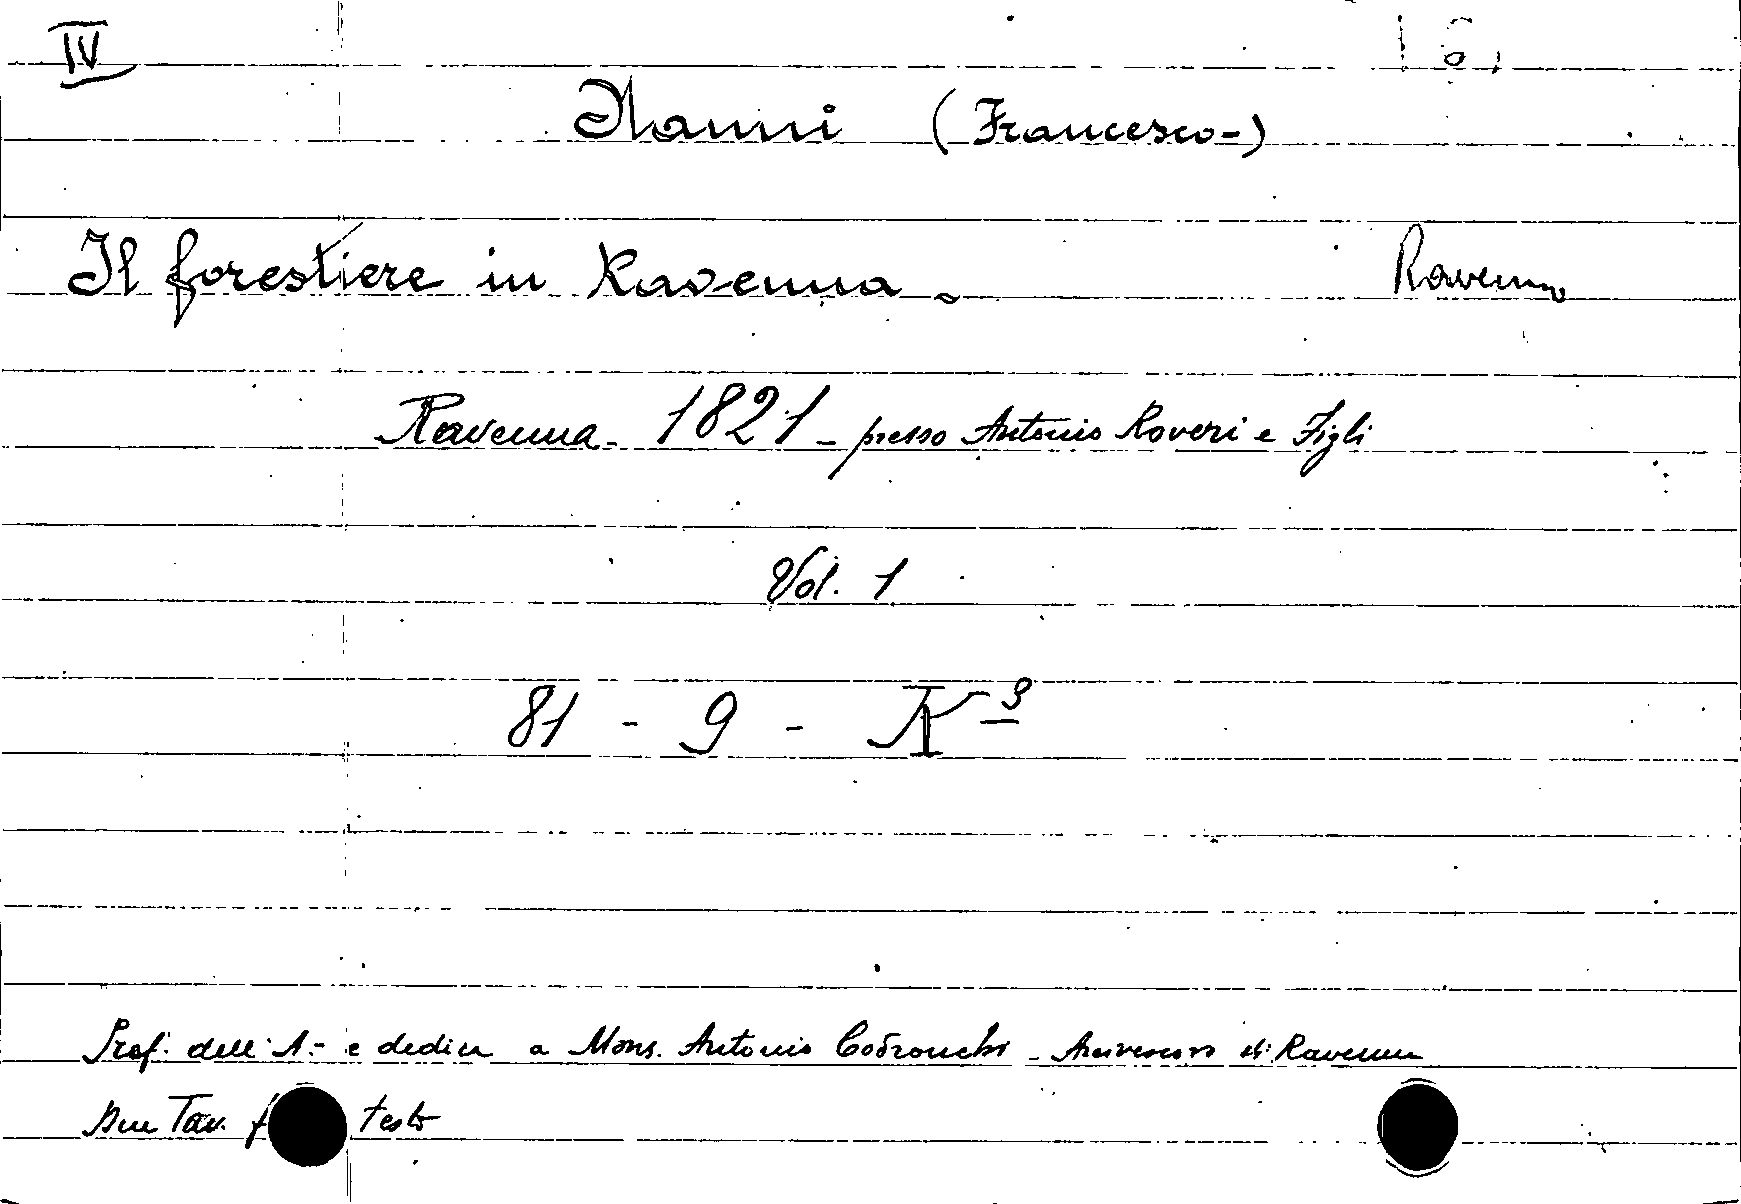 IV
Nanni (Francesco-)
Il forestiere in Ravenna. Ravenna
Ravenna - 1821 - presso Antonio Roveri e Figli
Vol. 1
81 - 9 - K 3
Pref. dell'A. - e dedica a Mons. Antonio Codronchi - Arcivescovo di Ravenna
Due Tav. f testo